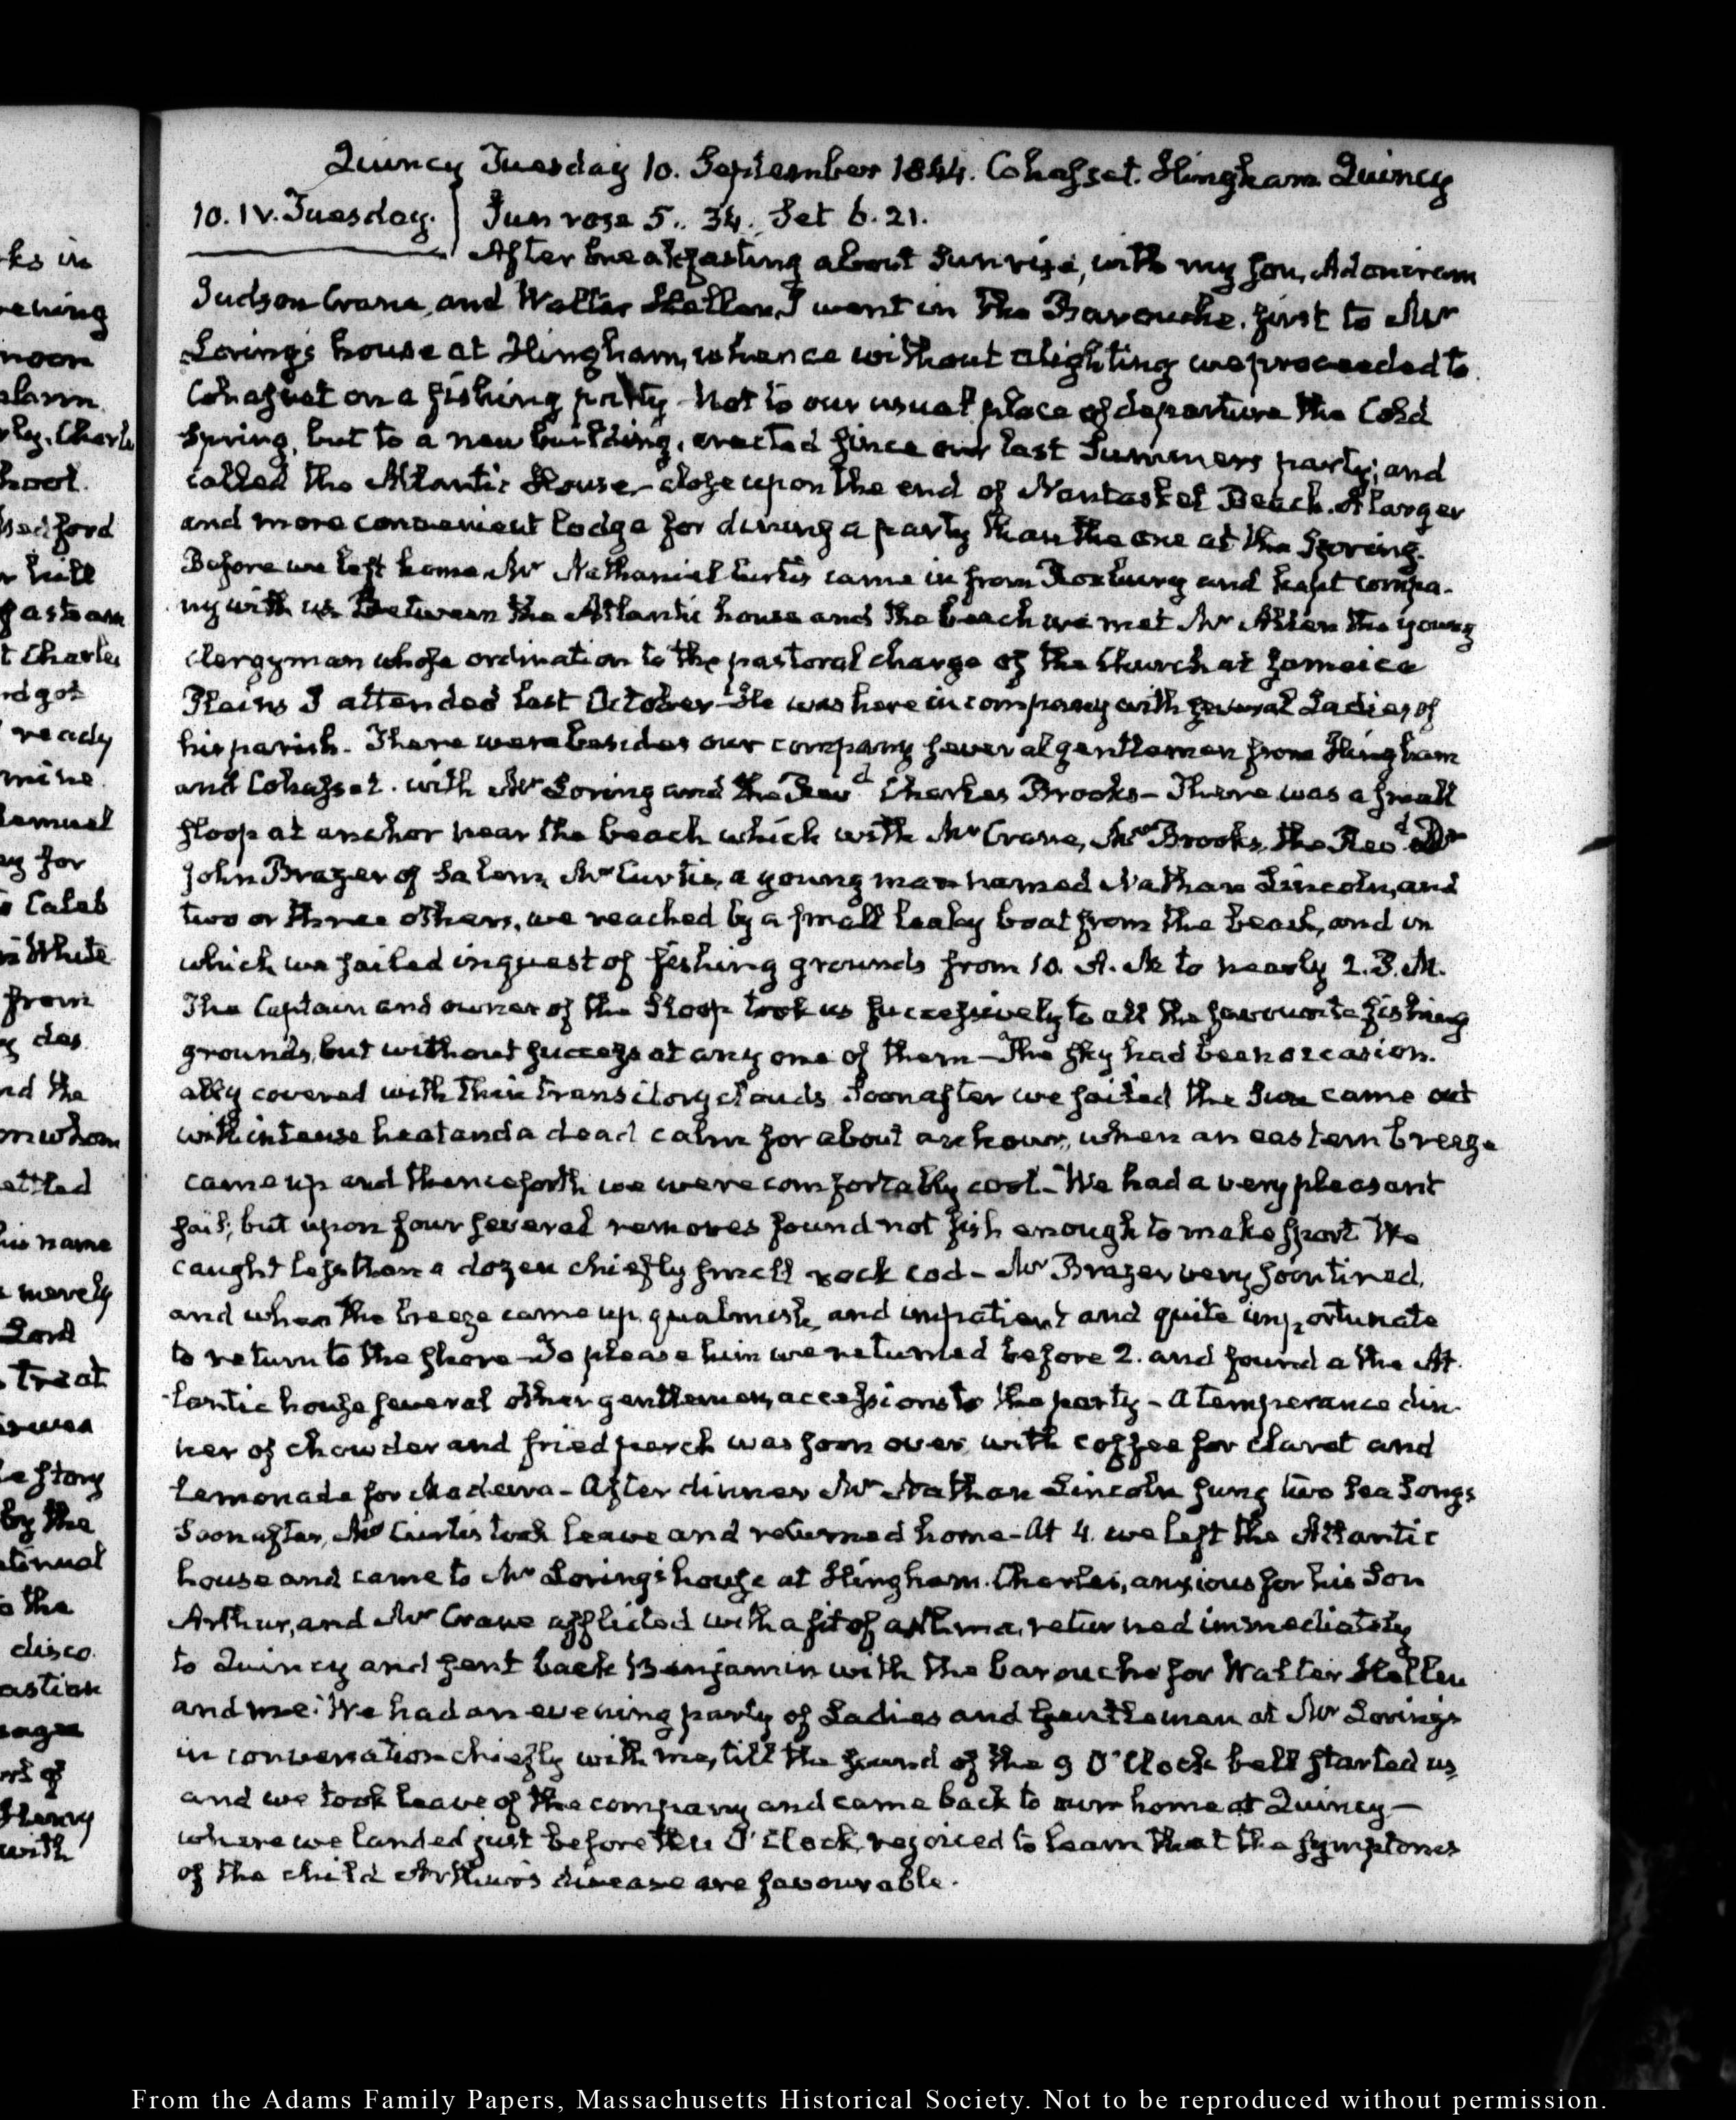 Quincy Tuesday 10. September 1844. Cohasset. Hingham. Quincy
10. IV. Tuesday. Sun rose 5. 34. Set 6. 21.
After breakfasting about Sunrise, with my son, Adoniram
Judson Crane, and Walter Hellen, I went in the Barouche, first to Mr
Loring's house at Hingham, whence without alighting we proceeded to
Cohasset on a fishing party - Not to our usual place of departure the Cold
Spring, but to a new building, erected since our last Summers party; and
called the Atlantic House - close upon the end of Nantasket Beach. A larger
and more convenient lodge for dining a party than the one at the Spring.
Before we left home Mr Nathaniel Curtis came in from Roxbury and kept compa-
ny with us Between the Atlantic house and the beach we met Mr Allen the young
Clergyman whose ordination to the pastoral charge of the Church at Jamaica
Plains I attended last October - He was here in company with several Ladies of
his parish. There were besides our company several gentlemen from Hingham
and Cohasset. with Mr Loring and the Revd Charles Brooks - There was a small
sloop at anchor near the beach which with Mr Crane, Mr Brooks, the Revd Dr
John Brazer of Salem, Mr Curtis, a young man named Nathan Lincoln, and
two or three others, we reached by a small leaky boat from the beach, and in
which we sailed in quest of fishing grounds from 10. A. M. to nearly 2. P. M.
The Captain and owner of the Sloop took us successively to all the favourite fishing
grounds, but without success at any one of them - The sky had been occasion-
ally covered with thin transitory clouds. Soon after we sailed the Sun came out
with intense heat and a dead calm for about an hour, when an eastern breeze
came up and thenceforth we were comfortably cool - We had a very pleasant
sail; but upon four several removes found not fish enough to make sport. We
caught less than a dozen chiefly small rock cod - Mr Brazer very soon tired,
and when the breeze came up, qualmish, and impatient and quite importunate
to return to the shore - To please him we returned before 2. and found a the At-
lantic house several other gentlemen, accessions to the party - a temperance din-
ner of chowder and fried perch was soon over, with coffee for claret and
lemonade for Madeira - After dinner Mr Nathan Lincoln sung two Sea Songs
Soon after, Mr Curtis took leave and returned home - At 4. we left the Atlantic
house and came to Mr Loring's house at Hingham. Charles, anxious for his Son
Arthur, and Mr Crane afflicted with a fit of asthma, returned immediately
to Quincy and sent back Benjamin with the barouche for Walter Hellen
and me. We had an evening party of Ladies and Gentlemen at Mr Loring's
in conversation chiefly with me, till the sound of the 9 O'Clock bell started us,
and we took leave of the company and came back to our home at Quincy -
where we landed just before ten O'Clock, rejoiced to learn that the symptoms
of the child Arthur's disease are favourable.
ks in
noon
alarm
hoot.
t Charles
ready
mine
Lemuel
to Caleb
n White
from
nd the
on whom
his name
merely
Lord
treat
by the
to the
disco
with
From the Adams Family Papers, Massachusetts Historical Society. Not to be reproduced without permission.